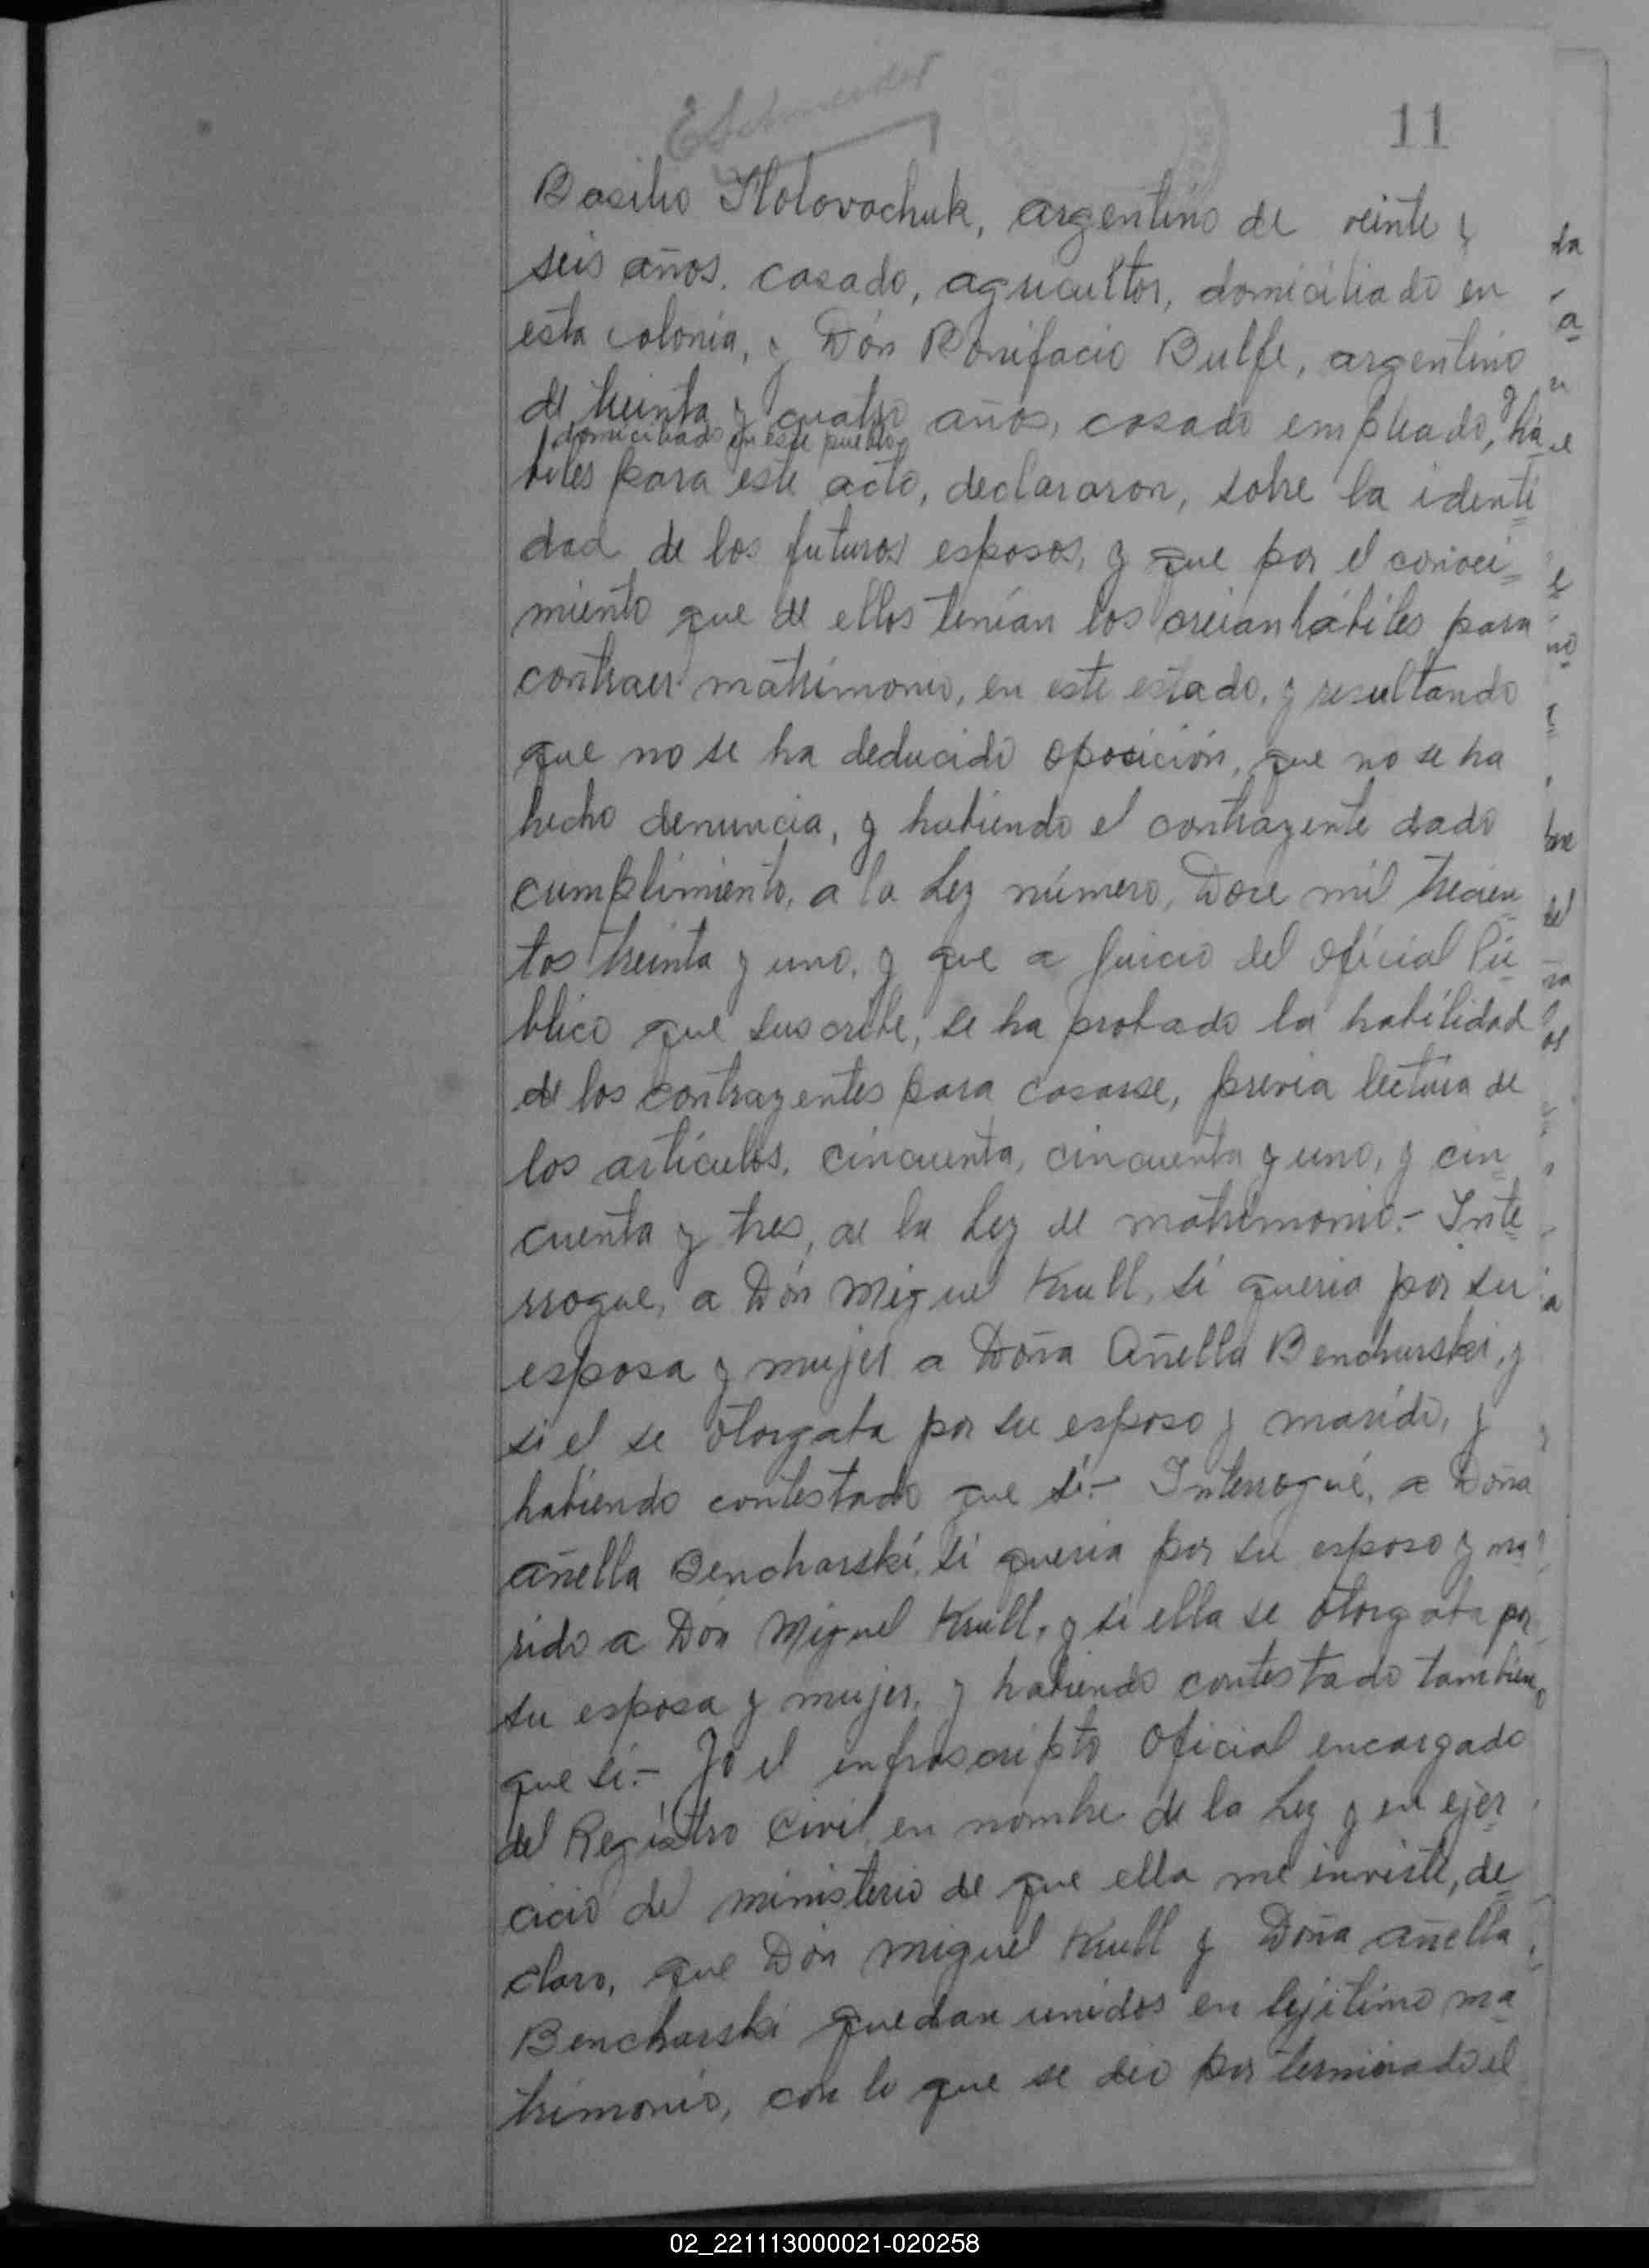 11
Basilio Holovachuk, argentino de veinte y
seis años, casado, agricultor, domiciliado en
esta colonia, y Dón Bonifacio Bulfe, argentino
de treinta y cuatro años, casado empleado, y há
domiciliado en este pueblo
biles para este acto, declararon, sobre la identi
dad de los futuros esposos, y que por el conoci=
miento que de ellos tenían los creian hábiles para
contraer matrimonio, en este estado, y resultando
que no se ha deducido oposición, que no se ha
hecho denuncia, y habiendo el contrayente dado
cumplimiento, a la Ley número, Doce mil trecien
tos treinta y uno, y que a juicio del oficial Pú
blico que suscribe, se ha probado la habilidad
de los contrayentes para casarse, previa lectura de
los artículos, cincuenta, cincuenta y uno, y cin
cuenta y tres, de la Ley de matrimonio.- Inte
rrogue, a Dón Miguel Krull, si queria por su
esposa y mujer a Doña Añella Bencharski, y
si el se otorgaba por su esposo y marido, y
habiendo contestado que sí.- Interrogué, a Doña
añella Bencharski, si queria por su esposo y ma
rido a Dón Miguel Krull, y si ella se otorgaba por
su esposa y mujer, y habiendo contestado tambien,
que sí.- Yo el infrascripto Oficial encargado
del Registro Civil en nombre de la Ley y en ejer
cicio del ministerio de que ella me inviste, de
claro, que Dón Miguel Krull y Doña añella
Bencharski quedan unidos en lejitimo ma
trimonio, con lo que se dio por terminado el
02_221113000021-020258